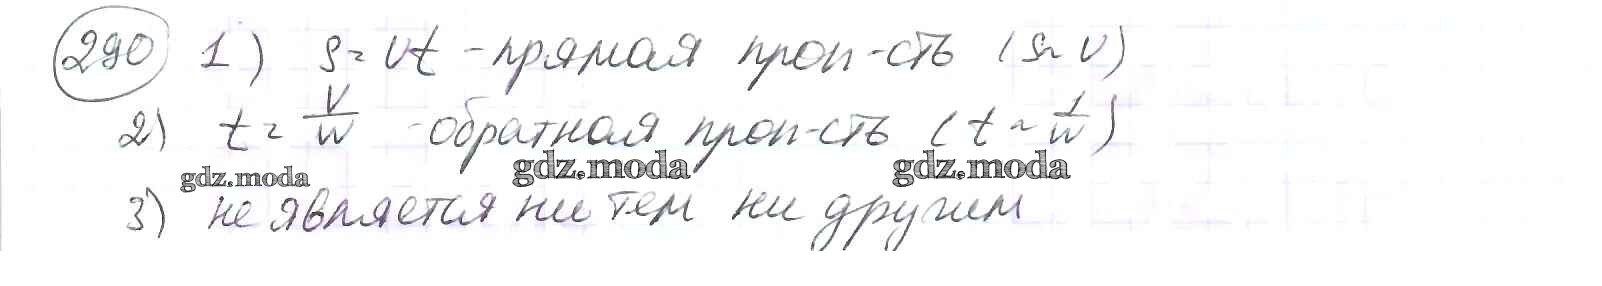 290 1) S = vt - прямая проп-сть (S ~ v)
2) t = V/W - обратная проп-сть (t ~ 1/W)
gdz.moda gdz.moda gdz.moda
3) не является ни тем ни другим